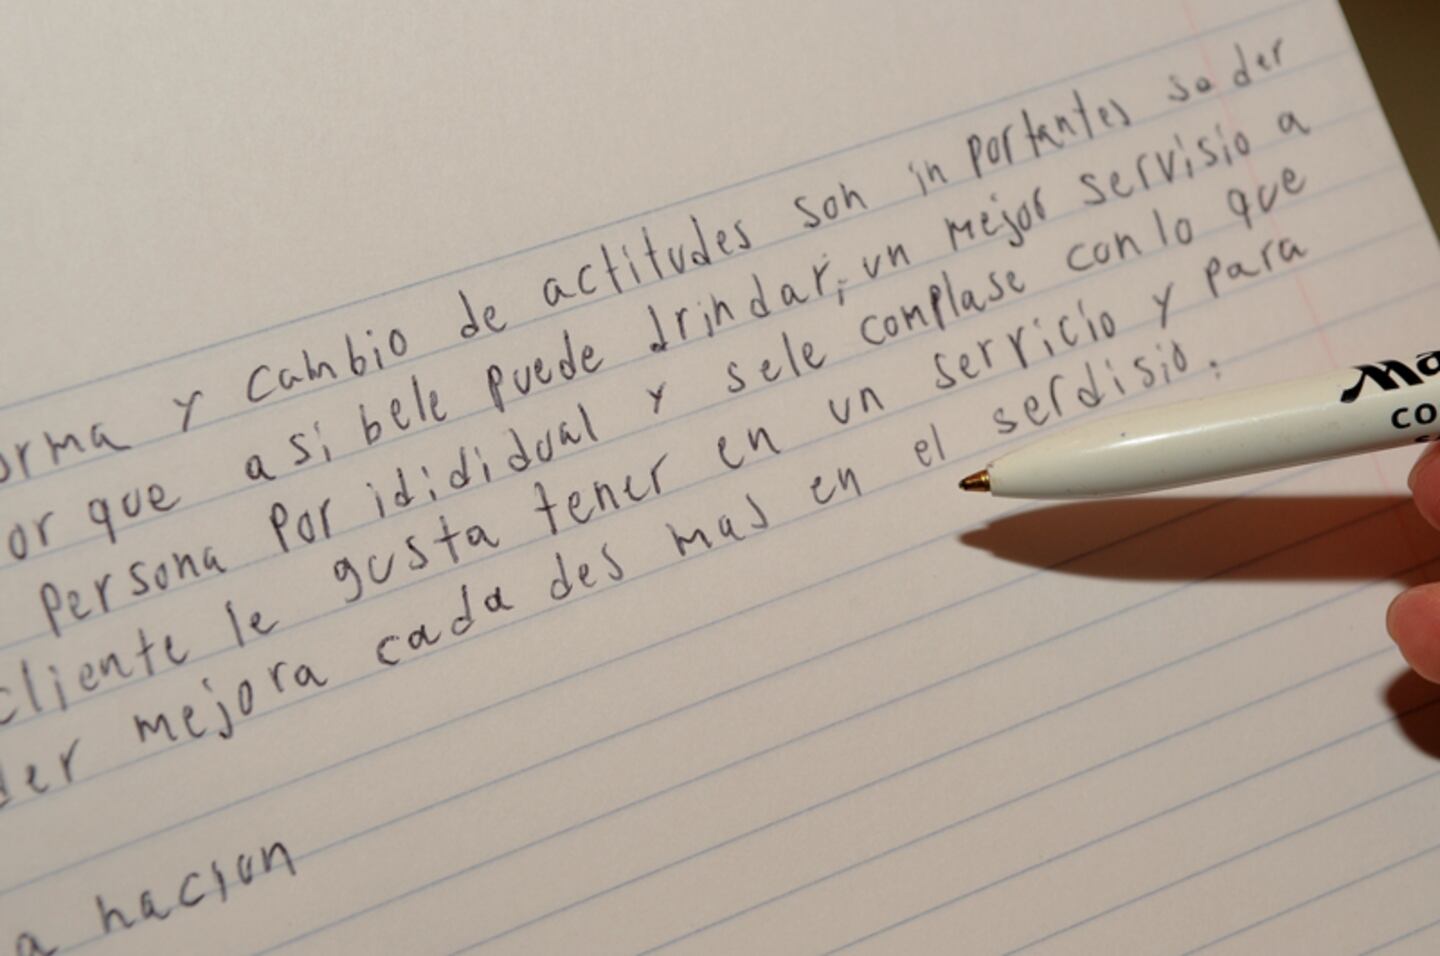 orma y cambio de actitudes son in portantes sa der
or que asi bele puede drindar, un mejor servisio a
persona por idididual y sele complase con lo que
cliente le gusta tener en un serricio y para
der mejora cada des mas en el serdisio.
a nacion
Ma
CO